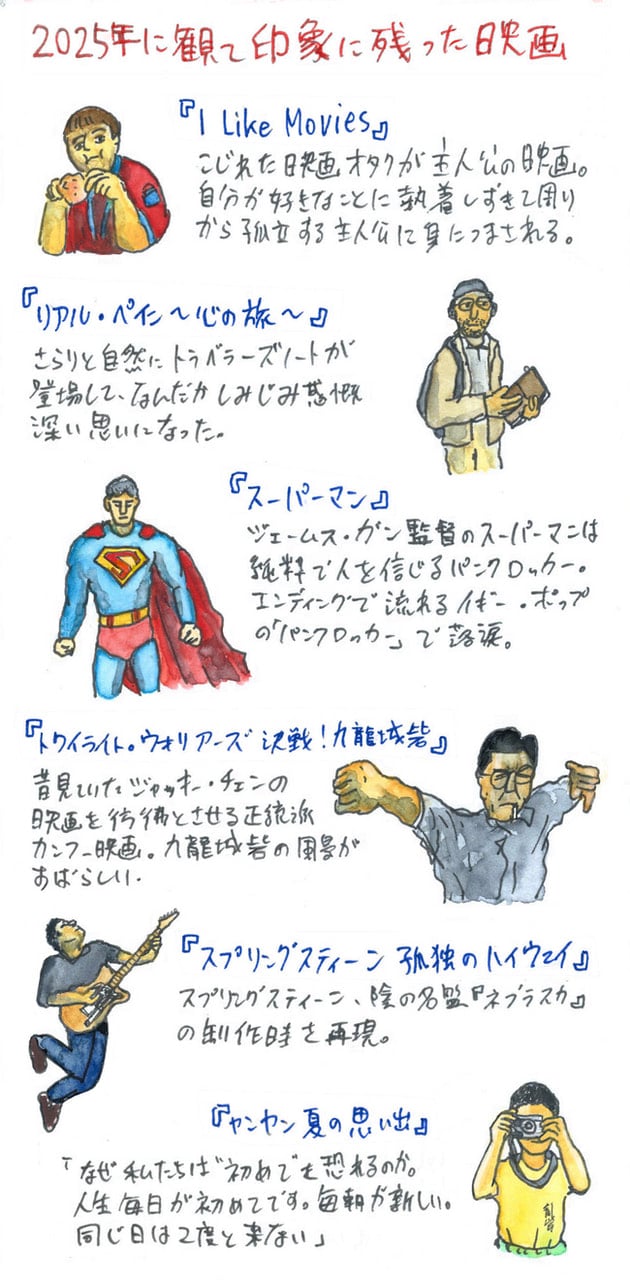 2025年に観て印象に残った映画
『I Like Movies』
こじれた映画オタクが主人公の映画。
自分が好きなことに執着しすぎて周り
から孤立する主人公に身につまされる。
『リアル・ペイン〜心の旅〜』
さらりと自然にトラベラーズノートが
登場して、なんだかしみじみ感慨
深い思いになった。
『スーパーマン』
ジェームス・ガン監督のスーパーマンは
純粋で人を信じるパンクロッカー。
エンディングで流れるイギー・ポップ
の「パンクロッカー」で落涙。
『トワイライト・ウォリアーズ 決戦!九龍城砦』
昔見ていたジャッキー・チェンの
映画を彷彿とさせる正統派
カンフー映画。九龍城砦の風景が
すばらしい。
『スプリングスティーン 孤独のハイウェイ』
スプリングスティーン、陰の名盤『ネブラスカ』
の制作時を再現。
『ヤンヤン 夏の思い出』
「なぜ私たちは"初めて"を恐れるのか。
人生毎日が初めてです。毎朝が新しい。
同じ日は2度と来ない」